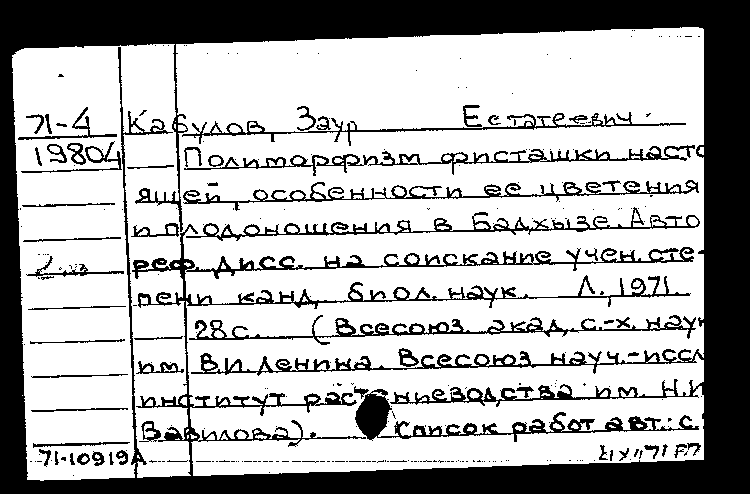 71-4 Кабулов, Заур Естатеевич.
19804 Полиморфизм фисташки насто
ящей, особенности ее цветения
и плодоношения в Бадхызе. Авто
реф. дисс. на соискание учен. сте-
пени канд. биол. наук. Л., 1971.
28 с. (Всесоюз. акад. с.-х. наук
им. В.И. Ленина. Всесоюз. науч.-иссл
институт растениеводства им. Н.И
Вавилова). Список работ авт.: с.
71-10919А